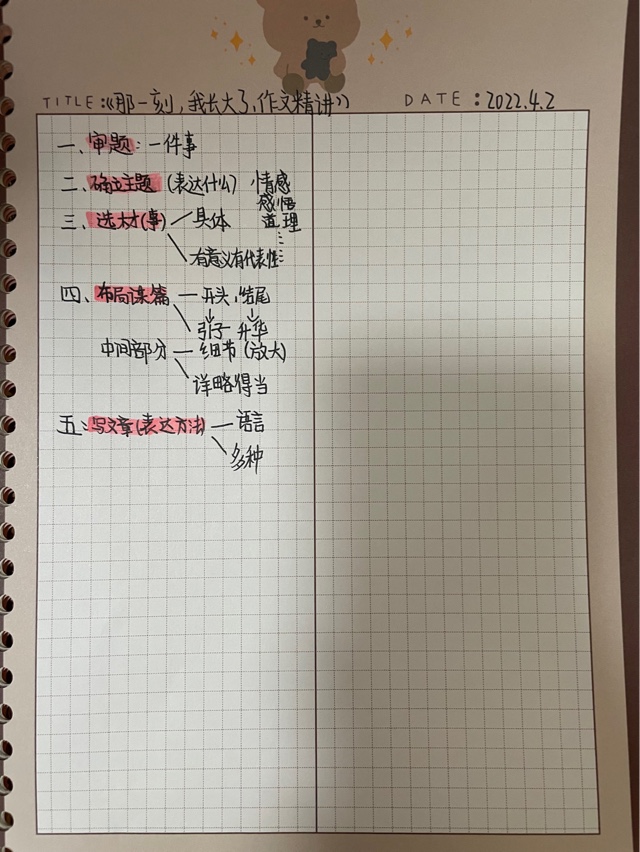 TITLE:《那一刻，我长大了，作文精讲》 DATE:2022.4.2
一、审题：一件事
二、确立主题（表达什么）情感
感悟
三、选材（事） 具体 道理
有意义有代表性
四、布局谋篇 — 开头，结尾
引子 升华
中间部分 — 细节（放大）
详略得当
五：写文章（表达方法）— 语言
多种